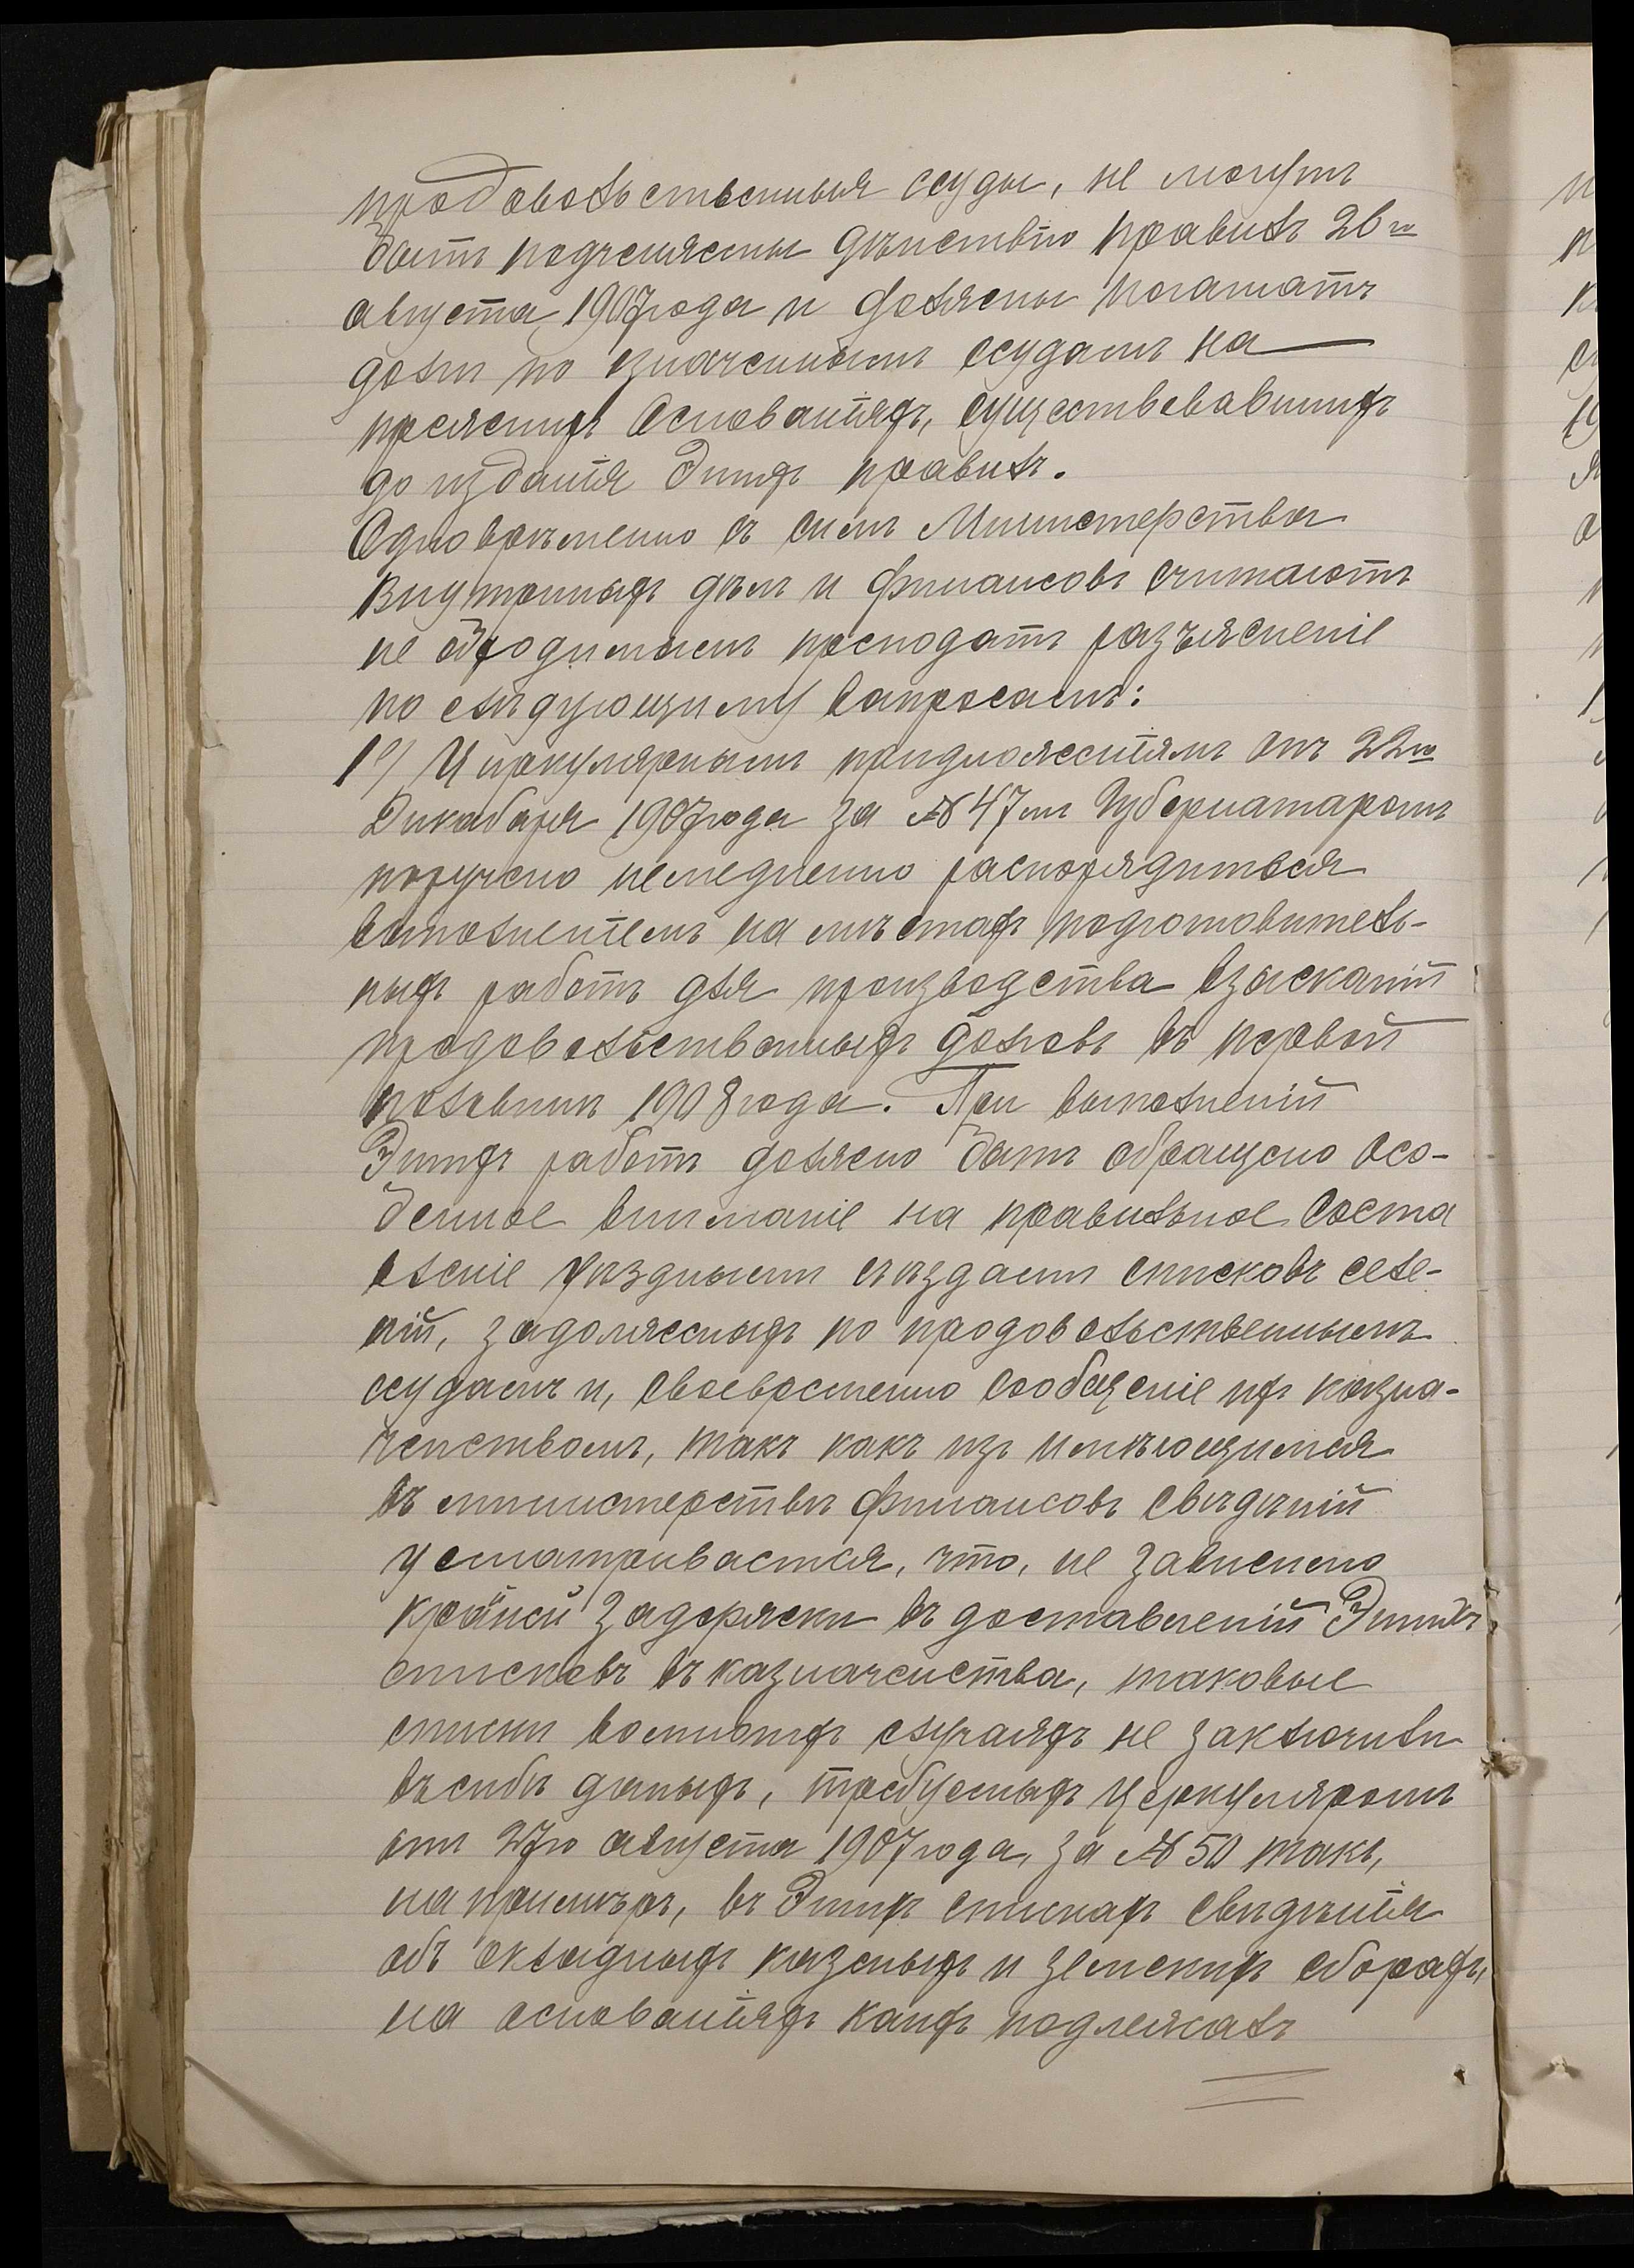 продовольственныя ссуды, не могутъ
быть подчинены дѣйствію правилъ 26го
августа 1907 года и должны погашать
долги по означеннымъ ссудамъ на
прежнихъ основаніяхъ, существовавшихъ
до изданія этихъ правилъ.
Одновременно съ симъ Министерства
внутреннихъ дѣлъ и финансовъ считаютъ
не обходимымъ преподать разъясненіе
по слѣдующиму вапросамъ:
1º/ Циркулярнымъ придложеніямъ отъ 22го
Дикабаря 1907 года за № 47мъ Губернатаромъ
поручено немедленно распорядиться
выполненіемъ на мѣстахъ подготовитель-
ныхъ работъ для производства взысканій
продовольственныхъ долговъ въ первой
половинѣ 1908 года. При выполненій
этихъ работъ должно быть обращено осо-
бенное вниманіе на правильное соста
вленіе уѣздными съѣздами списковъ селе-
ній, задолженыхъ по продовольственнымъ
ссудамъ и, своевременно сообщеніе ихъ казна-
чействомъ, такъ какъ изъ имѣющимся
въ министерствѣ финансовъ свѣдѣній
усматривается, что, не зависимо
крайней задержки въ доставленій этихъ
списковъ въ казначейства, таковые
списки вомногихъ случаяхъ не заключили
въ сибѣ даныхъ, требуемыхъ церкуляромъ
отъ 27го августа 1907 года, за № 50 такъ,
на примѣръ, въ этихъ спискахъ свѣдѣнія
объ окладныхъ казеныхъ и земскихъ сборахъ,
на основаніяхъ каихъ подлежалъ